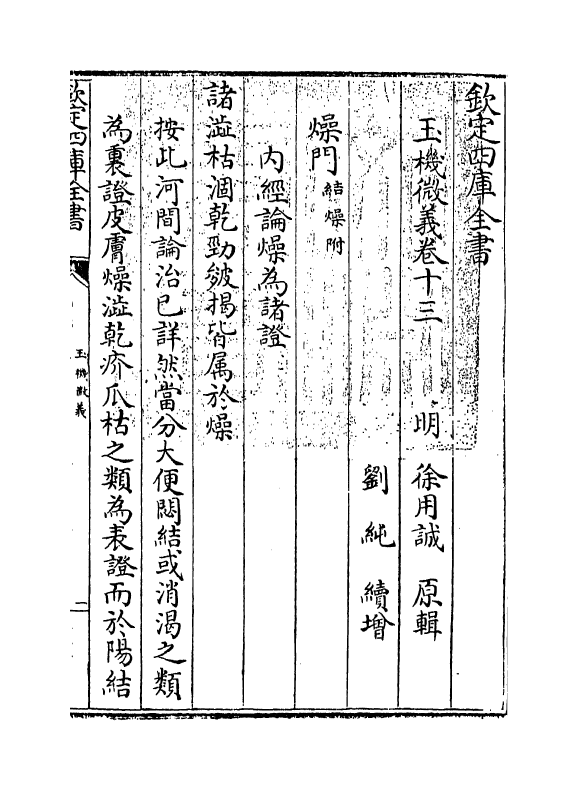 欽定四庫全書
玉機微義卷十三
明 徐用誠 原輯
劉純 續增
燥門結燥附
内經論燥為諸證
諸澁枯涸乾勁皴揭皆属於燥
按此河間論治已詳然當分大便悶結或消渴之類
為裏證皮膚燥澁乾疥爪枯之類為表證而於陽結
欽定四庫全書
玉機微義
二